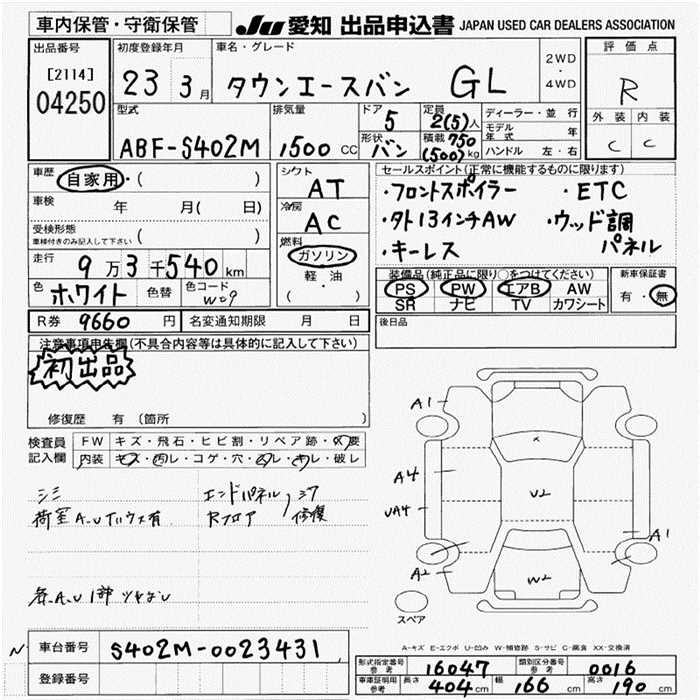 車内保管・守衛保管
JU 愛知 出品申込書 JAPAN USED CAR DEALERS ASSOCIATION
出品番号
[2114]
04250
初度登録年月
23 3月
車名・グレード
タウンエースバン GL
2WD
・
4WD
評価点
R
外装 内装
C C
型式
ABF-S402M
排気量
1500 CC
ドア
5
形状
バン
定員
2(5)人
積載 750
(500)kg
ディーラー・並行
モデル年式 年
ハンドル 左・右
車歴
自家用・( )
車検
年 月( 日)
受検形態
車検付きのみ記入して下さい ( )
走行
9万3千540km
色
ホワイト
色替
色コード
W09
シフト
AT
冷房
AC
燃料
ガソリン
軽・油
( ・ )
セールスポイント(正常に機能するものに限ります)
・フロントスポイラー ・ETC
・タト13インチAW ・ウッド調
・キーレス パネル
装備品(純正品に限り○をつけてください)
PS PW エアB AW
SR ナビ TV カワシート
新車保証書
有・無
R券 9660円
名変通知期限 月 日
後日品
注意事項申告欄(不具合内容等は具体的に記入して下さい)
初出品
修復歴 有(箇所 )
検査員
記入欄
FW キズ・飛石・ヒビ割・リペア跡・X要
内装 キズ・汚レ・コゲ・穴・スレ・キレ・破レ
シミ エンドパネル
荷室A.Uデカウス有 Rフロア シワ
修復
各A.U1部ツヤなし
A1
A4
UA4
A2
A1
U2
W2
スペア
A-キズ E-エクボ U-凹み W-補修跡 S-サビ C-腐食 XX-交換済
N
車台番号 S402M-0023431
登録番号
形式指定番号
参考
16047
類別区分番号
参考
0016
車庫証明用
参考
長さ 404cm 幅 166cm 高さ 190cm